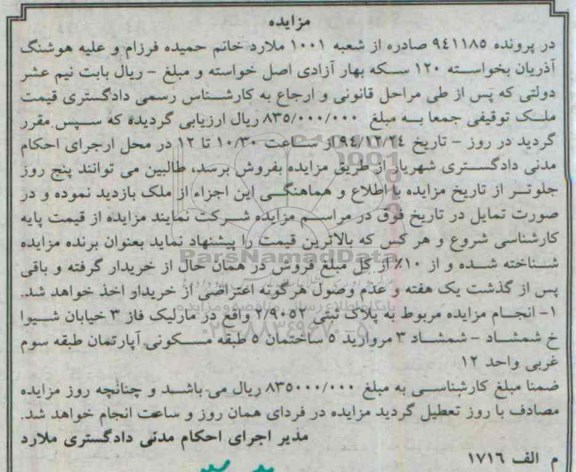 مزایده
در پرونده ٩٤١١٨٥ صادره از شعبه ١٠٠١ ملارد خانم حمیده فرزام و علیه هوشنگ
آذریان بخواسته ١٢٠ سکه بهار آزادی اصل خواسته و مبلغ – ریال بابت نیم عشر
دولتی که پس از طی مراحل قانونی و ارجاع به کارشناس رسمی دادگستری قیمت
ملک توقیفی جمعا به مبلغ ٨٣٥/٠٠٠/٠٠٠ ریال ارزیابی گردیده که سپس مقرر
گردید در روز – تاریخ ٩٤/١٢/٢٤ از ساعت ١٠/٣٠ تا ١٢ در محل ارجرای احکام
مدنی دادگستری شهریار از طریق مزایده بفروش برسد، طالبین می توانند پنج روز
جلوتر از تاریخ مزایده با اطلاع و هماهنگی این اجراء از ملک بازدید نموده و در
صورت تمایل در تاریخ فوق در مراسم مزایده شرکت نمایند مزایده از قیمت پایه
کارشناسی شروع و هر کس که بالاترین قیمت را پیشنهاد نماید بعنوان برنده مزایده
شناخته شده و از ١٠٪ از کل مبلغ فروش در همان حال از خریدار گرفته و باقی
پس از گذشت یک هفته و عدم وصول هرگونه اعتراضی از خریدار اخذ خواهد شد.
١– انجام مزایده مربوط به پلاک ثبتی ٢/٩٠٥٢ واقع در مارلیک فاز ٣ خیابان شیوا
خ شمشاد – شمشاد ٣ مروارید ٥ ساختمان ٥ طبقه مسکونی آپارتمان طبقه سوم
غربی واحد ١٢
ضمنا مبلغ کارشناسی به مبلغ ٨٣٥٠٠٠/٠٠٠ ریال می باشد و چنانچه روز مزایده
مصادف با روز تعطیل گردید مزایده در فردای همان روز و ساعت انجام خواهد شد.
مدیر اجرای احکام مدنی دادگستری ملارد
م الف ١٧١٦
ParsNamadData